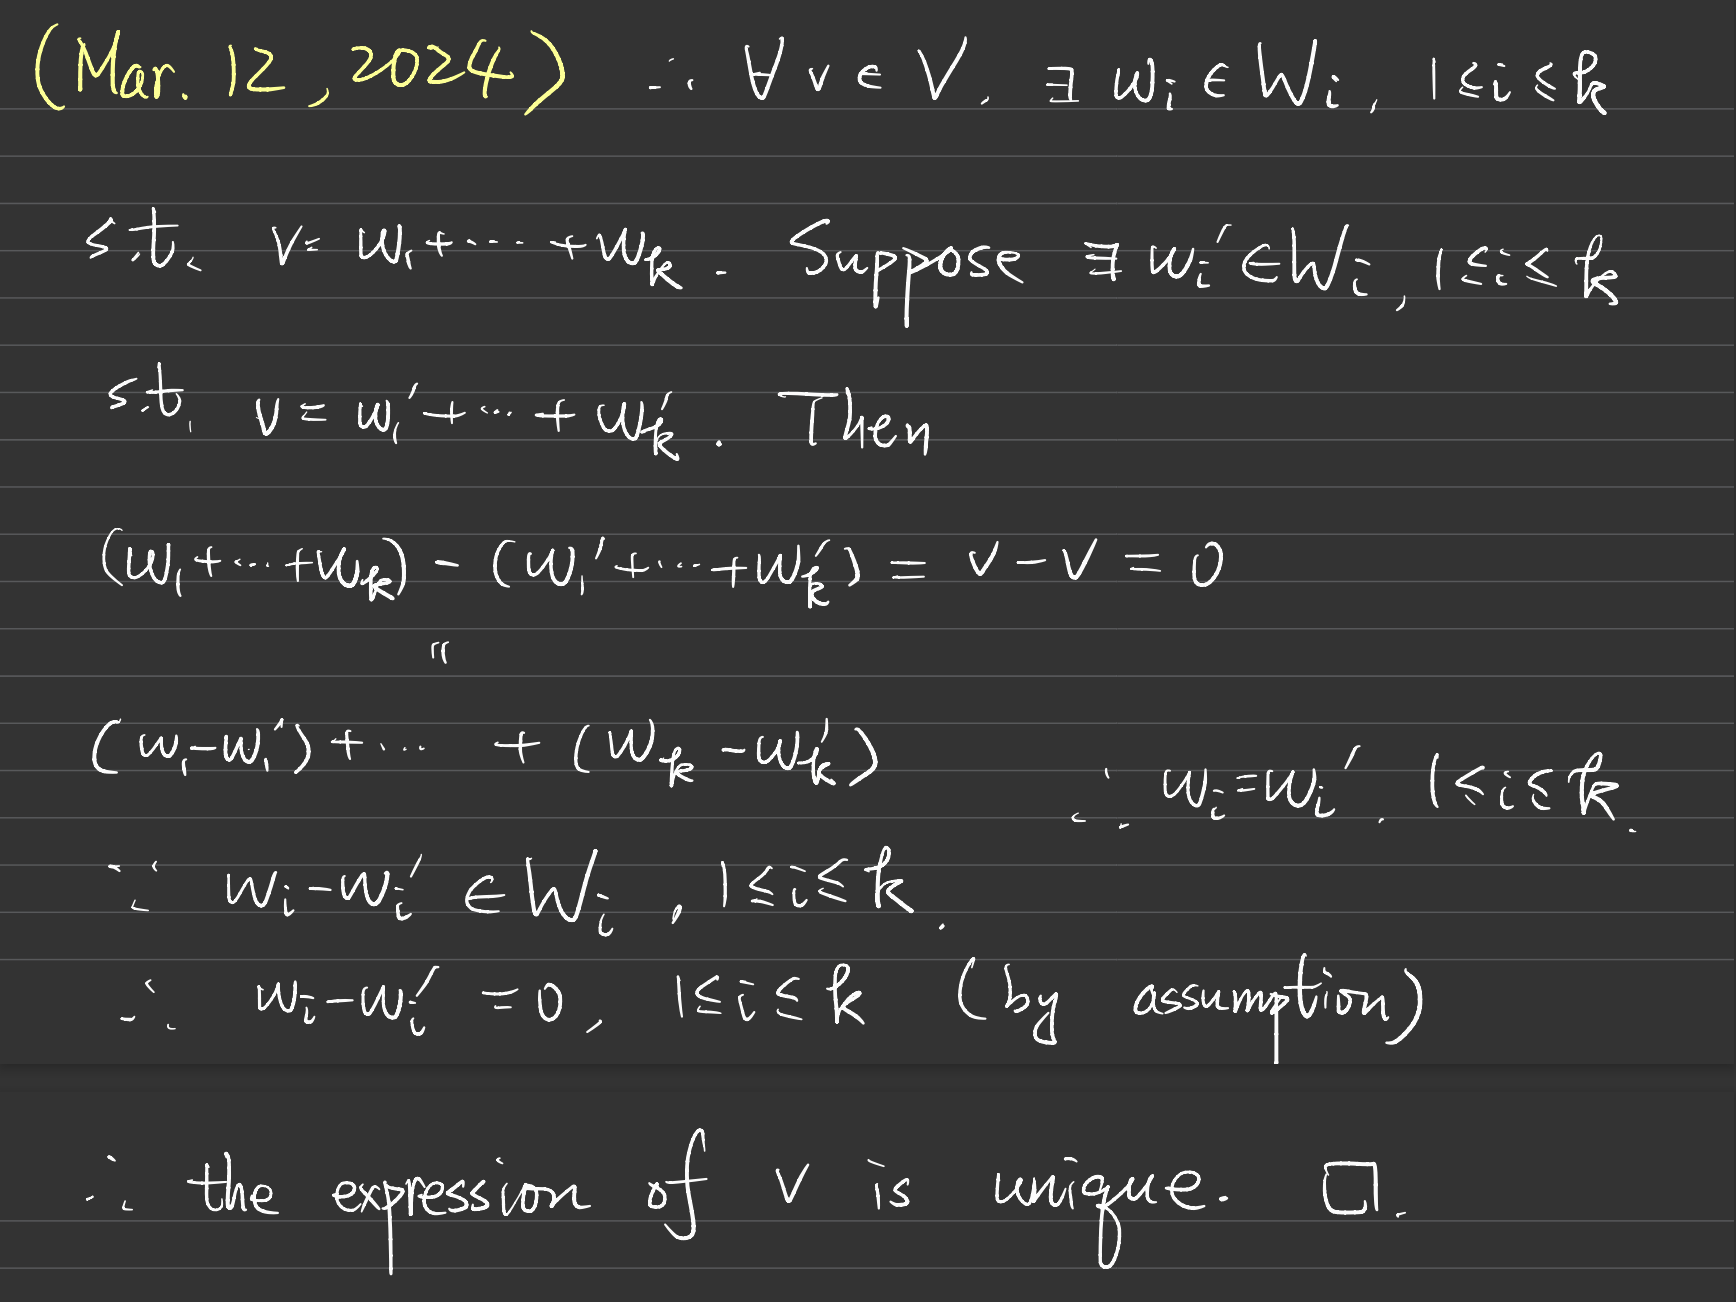 (Mar. 12, 2024) ∴ ∀ v ∈ V, ∃ wᵢ ∈ Wᵢ, 1 ≤ i ≤ k
s.t. v = w₁ + ⋯ + wₖ. Suppose ∃ wᵢ' ∈ Wᵢ, 1 ≤ i ≤ k
s.t. v = w₁' + ⋯ + wₖ'. Then
(w₁ + ⋯ + wₖ) − (w₁' + ⋯ + wₖ') = v − v = 0
"
(w₁ − w₁') + ⋯ + (wₖ − wₖ')
∴ wᵢ = wᵢ', 1 ≤ i ≤ k.
∵ wᵢ − wᵢ' ∈ Wᵢ, 1 ≤ i ≤ k.
∴ wᵢ − wᵢ' = 0, 1 ≤ i ≤ k (by assumption)
∴ the expression of v is unique. □.